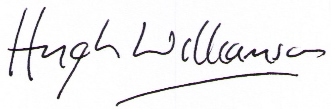 Hugh Williamson